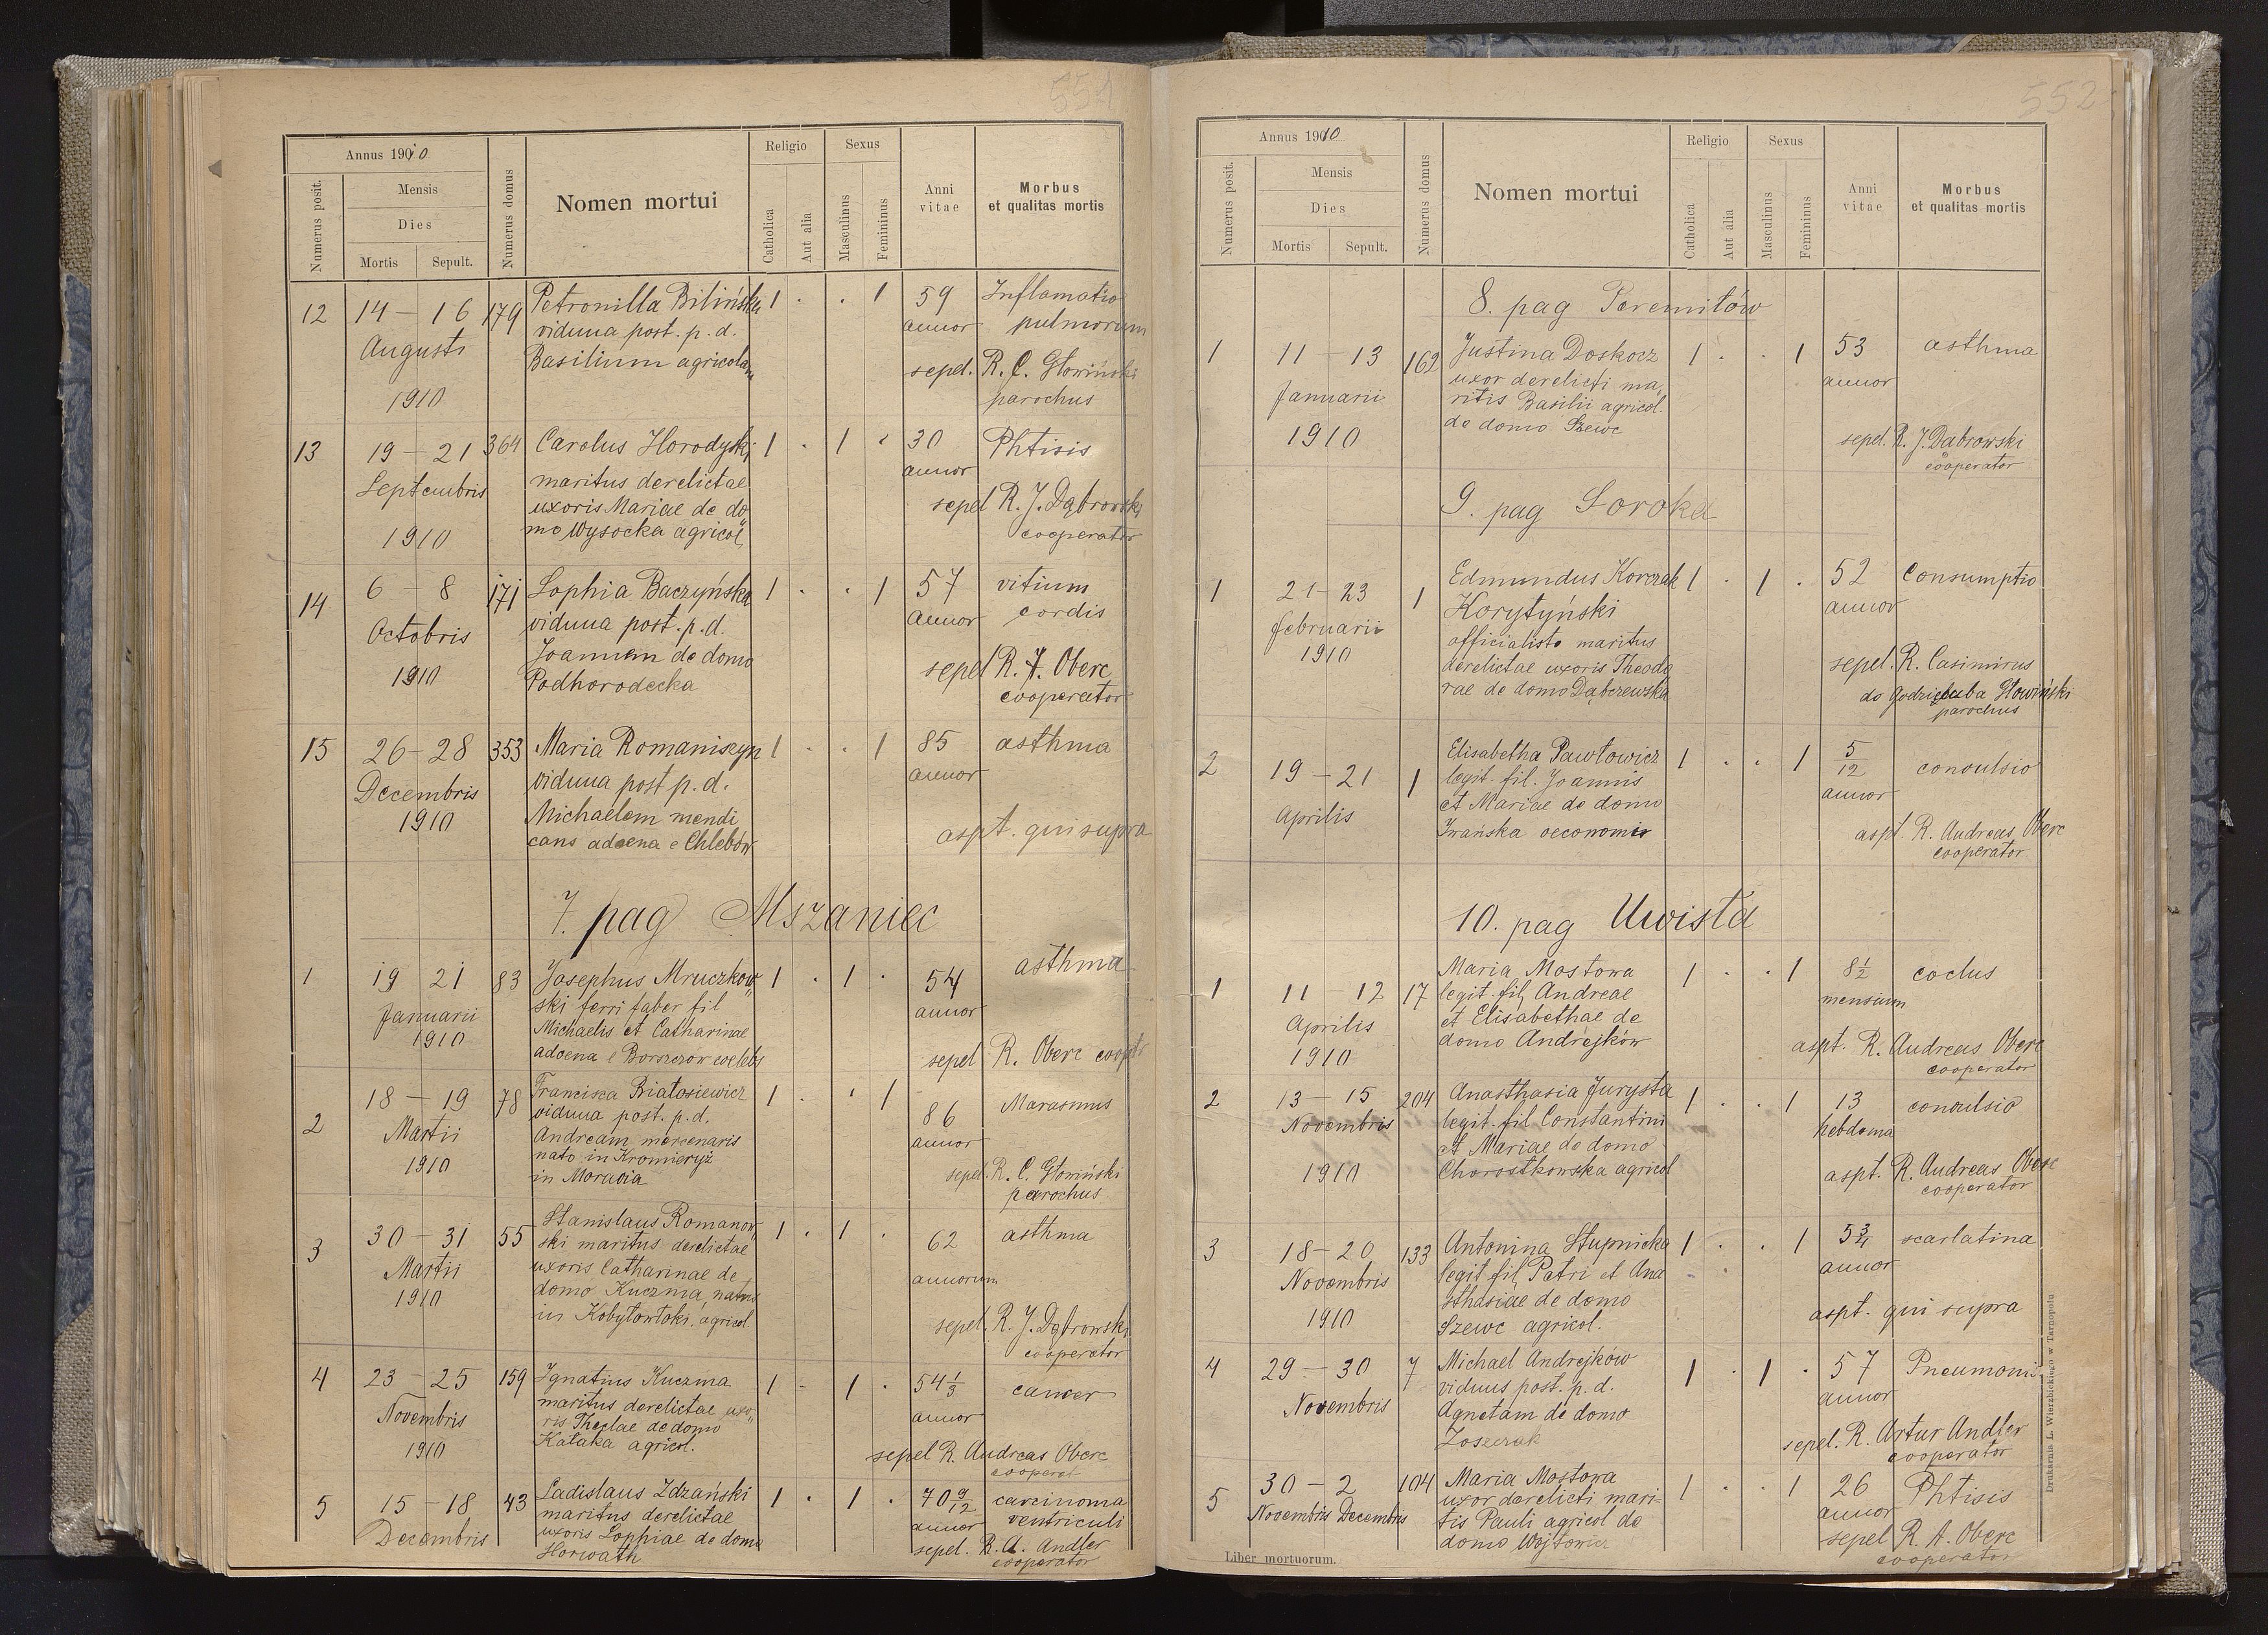 551
Annus 1910
Numerus posit.
Mensis
Dies
Mortis
Sepult.
Numerus domus
Nomen mortui
Religio
Catholica
Aut alia
Sexus
Masculinus
Femininus
Anni vitae
Morbus et qualitas mortis
12 14 – 16 179 Petronilla Bilińska 1 . . 1 59 Inflamatio
Augusti vidua post. p. d. annor pulmorum
1910 Basilium agricolam sepel. R. C. Głowiński
parochus
13 19 – 21 364 Carolus Horodyski 1 . 1 . 30 Phtisis
Septembris maritus derelictae annor
uxoris Mariae de do sepel R. J. Dąbrowski
1910 mo Wysocka agricol, cooperator
14 6 – 8 171 Sophia Baczyńska 1 . . 1 57 vitium
Octobris vidua post. p. d. annor cordis
1910 Joannem de domo sepel R. A. Oberc
Podhorodecka cooperator
15 26 – 28 353 Maria Romaniszyn 1 . . 1 85 asthma
Decembris vidua post p. d. annor
1910 Michaelem mendi
cans advena e Chlebów aspt. qui supra
7. pag Mszaniec
1 19 21 83 Josephus Mruczkow„ 1 . 1 . 54 asthma
Januarii ski ferri faber fil annor
1910 Michaelis et Catharinae
advena e Borszczow coelebs sepel R. Oberc coopt
2 18 – 19 78 Francisca Białosiewicz 1 . . 1 86 Marasmus
Martii vidua post. p. d. annor
1910 Andream mercenaris
nato in Kromieryż sepel. R. C. Głowiński
in Moravia parochus
3 30 – 31 55 Stanislaus Romanow„ 1 . 1 . 62 asthma
Martii ski maritus derelictae annorum
1910 uxoris Catharinae de
domo Kuczma, natus sepel. R. J. Dąbrowski
in Kobyłowłoki. agricol. cooperator
4 23 – 25 159 Ignatius Kuczma 1 – 1 . 54 1/3 cancer
Novembris maritus derelictae uxo„ annor
1910 ris Theclae de domo
Kataka agricol. sepel R. Andreas Oberc
cooperat
5 15 – 18 43 Ladislaus Zdzański 1 . 1 . 70 9/12 carcinoma
Decembris maritus derelictae annor ventriculi
uxoris Sophiae de domo sepel. R. A. Andler
Horwath cooperator
552
Annus 1910
Numerus posit.
Mensis
Dies
Mortis
Sepult.
Numerus domus
Nomen mortui
Religio
Catholica
Aut alia
Sexus
Masculinus
Femininus
Anni vitae
Morbus et qualitas mortis
8. pag Peremiłów
1 11 – 13 162 Justina Doskocz 1 . . 1 53 asthma
Januarii uxor derelicti ma„ annor
1910 ritis Basilii agricol.
de domo Szewc sepel. R. J. Dąbrowski
cooperator
9. pag Soroka
1 21 – 23 1 Edmundus Korczak 1 . 1 . 52 Consumptio
februarii Korytyński annor
1910 officialista maritus
derelictae uxoris Theodo sepel. R. Casimirus
rae de domo Dąbczewska de Godzięmba Głowiński
parochus
2 19 – 21 1 Elisabetha Pawłowicz 1 . . 1 5/12 convulsio
Aprilis legit. fil. Joannis annor
et Mariae de domo
Irańska oeconomis aspt. R. Andreas Oberc
cooperator
10. pag Uwisła
1 11 – 12 17 Maria Mostowa 1 . . 1 8 1/2 coclus
Aprilis legit. fil, Andreae mensium
1910 et Elisabethae de
domo Andrejków aspt. R. Andreas Oberc
cooperator
2 13 – 15 204 Anasthasia Jurysta 1 . . 1 13 convulsio
Novembris legit. fil Constantini hebdoma
1910 et Mariae de domo
Chorostkowska agricol aspt. R. Andreas Oberc
cooperator
3 18 – 20 133 Antonina Stupnicka 1 . . 1 5 3/4 scarlatina
Novembris legit fil, Petri et Ana annor
1910 sthasiae de domo
Szewc agricol. aspt. qui supra
4 29 – 30 7 Michael Andrejków 1 . 1 . 57 Pneumoni
Novembris viduus post. p. d. annor
Agnetam de domo
sepel. R. Artur Andler
cooperator
5 30 – 2 104 Maria Mostowa 1 . . 1 26 Phtisis
Novembris Decembris uxor derelicti mari- annor
tis Pauli agricol de sepel R. A. Oberc
domo Wojtowicz cooperator
Liber mortuorum.
Drukarnia L. Wierzbickiego w Tarnopolu